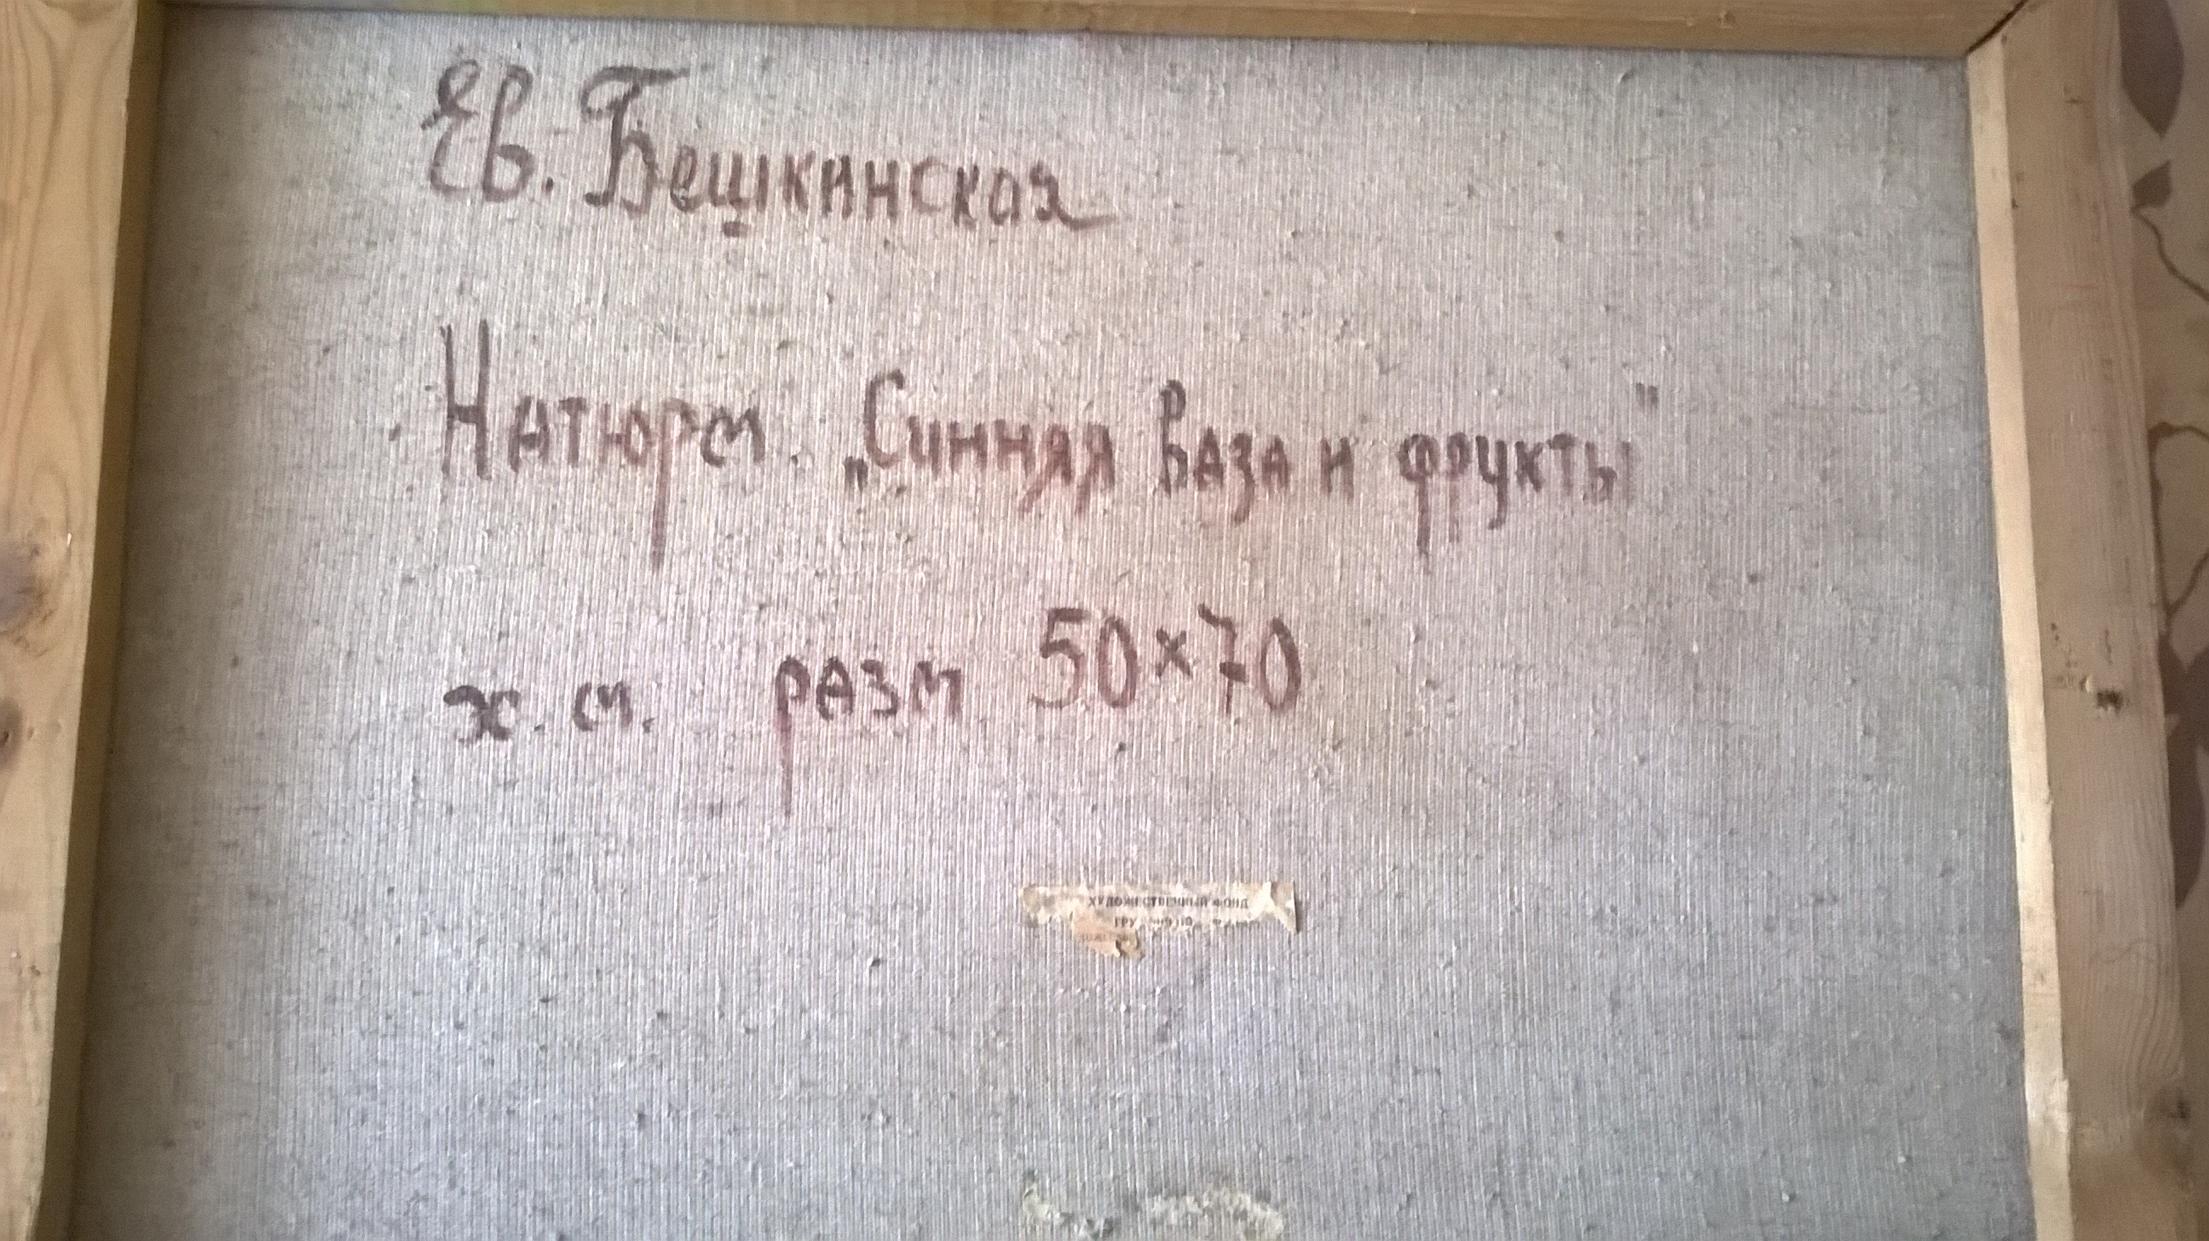 Ев. Бешкинская
Натюрм. „Синняя Ваза и фрукты"
х. м. разм 50×70
ХУДОЖЕСТВЕННЫЙ ФОНД